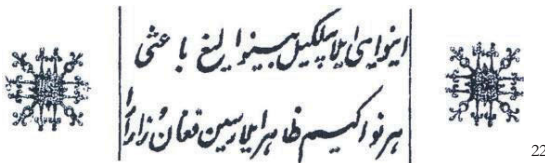 ای نوایی ایلا بیلکیل بینوا لیغ باعثی
هر نوا کیم ظاهر ایلارسین فغان زارارا
22